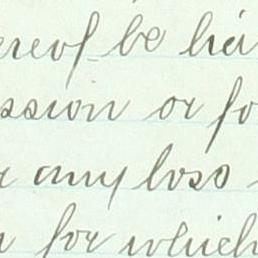 ereof be hei
ssion or fo
r any loss
for which